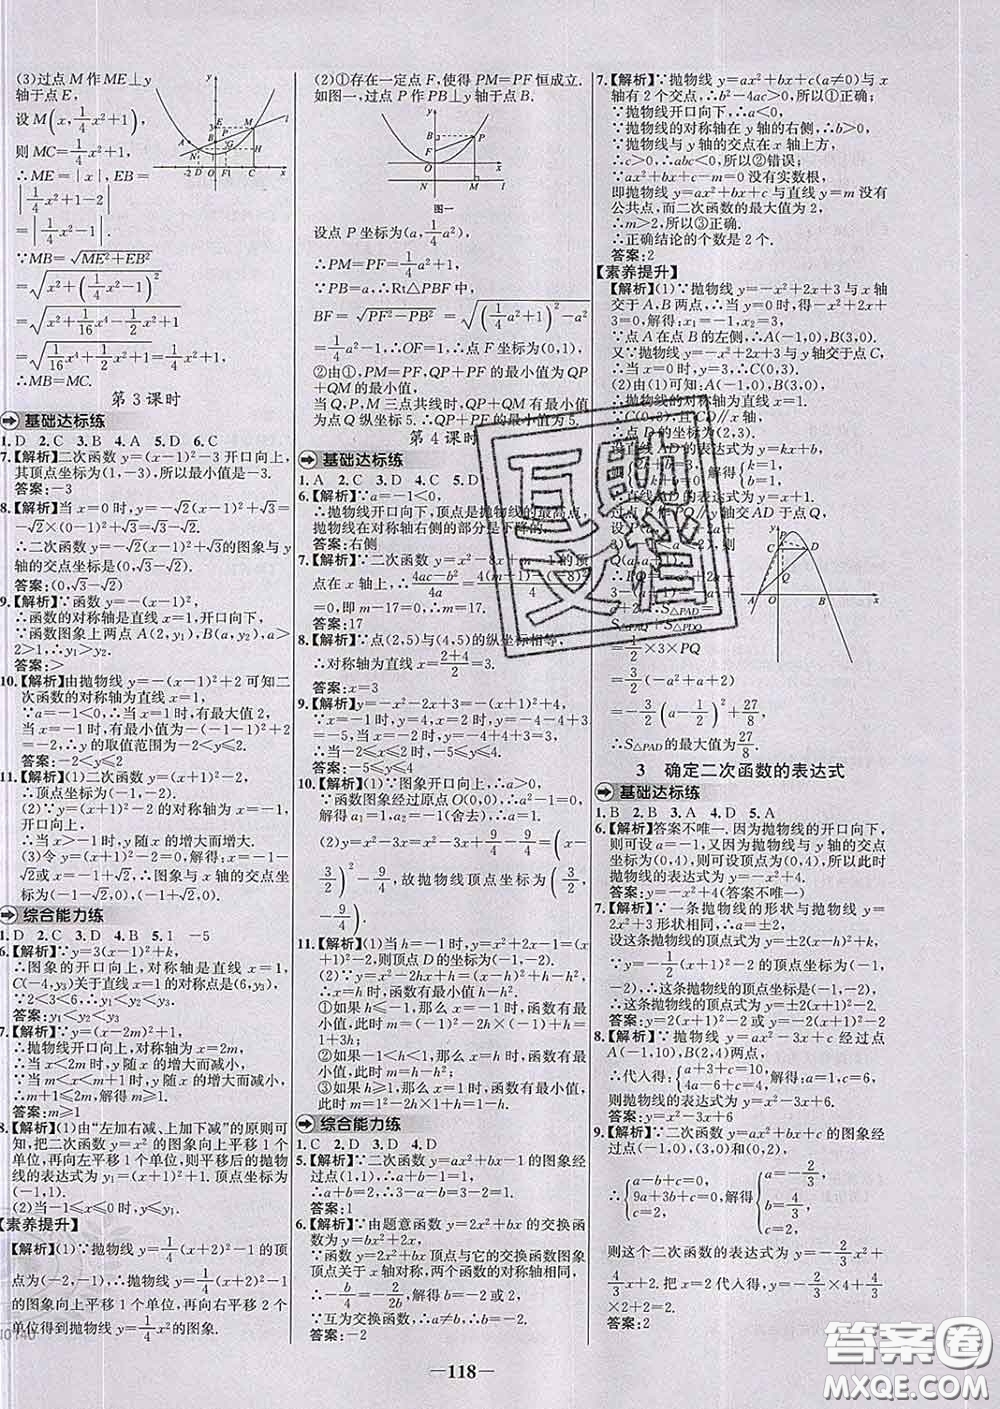 (3)过点 M 作 ME⊥y
轴于点 E,
设 M(x, 1/4x²+1),
则 MC=1/4x²+1,
∴ME=|x|, EB=
|1/4x²+1-2|
=|1/4x²-1|.
∵MB=√(ME²+EB²)
=√(x²+(1/4x²-1)²)
=√(x²+1/16x⁴-1/2x²+1)
=√(1/16x⁴+1/2x²+1)=1/4x²+1.
∴MB=MC.
第 3 课时
基础达标练
1. D 2. C 3. B 4. A 5. D 6. C
7.【解析】二次函数 y=(x-1)²-3 开口向上,
其顶点坐标为(1,-3),所以最小值是-3.
答案:-3
8.【解析】当 x=0 时,y=-√2(x-1)²+√3=
-√2×(0-1)²+√3=√3-√2.
∴二次函数 y=-√2(x-1)²+√3的图象与 y
轴的交点坐标是(0,√3-√2).
答案:(0,√3-√2)
9.【解析】∵函数 y=-(x-1)²,
∴函数的对称轴是直线 x=1,开口向下.
∵函数图象上两点 A(2,y₁),B(a,y₂),a>
2>1,∴y₁>y₂.
答案:>
10.【解析】由抛物线 y=-(x-1)²+2 可知二
次函数的对称轴为直线 x=1,
∵a=-1<0,∴x=1 时,有最大值 2,
当 x=-1 时,有最小值 y=-(-1-1)²+2
=-2,∴y 的取值范围为-2<y≤2.
答案:-2<y≤2
11.【解析】(1)二次函数 y=(x+1)²-2,
∴顶点坐标为(-1,-2).
(2)∵y=(x+1)²-2 的对称轴为 x=-1,
开口向上.
∴当 x>-1 时,y 随 x 的增大而增大.
(3)令 y=(x+1)²-2=0,解得:x=-1
-√2或 x=-1+√2,∴图象与 x 轴的交点坐
标为(-1-√2,0),(-1+√2,0).
综合能力练
1. D 2. C 3. D 4. B 5. 1 -5
6.【解析】∵y=3(x-1)²+k,
∴图象的开口向上,对称轴是直线 x=1,
C(-4,y₃)关于直线 x=1 的对称点是(6,y₃),
∵2<3<6,∴y₁<y₂<y₃.
答案:y₁<y₂<y₃
7.【解析】∵y=(x-2m)²+1,
∴抛物线开口向上,对称轴为 x=2m,
∴当 x<2m 时,y 随 x 的增大而减小,
∵当 x<m+1 时,y 随 x 的增大而减小,
∴m+1≤2m,解得 m≥1.
答案:m≥1
8.【解析】(1)由“左加右减、上加下减”的原则可
知,把二次函数 y=x² 的图象向上平移 1 个
单位,再向左平移 1 个单位,则平移后的抛物
线的表达式为 y₁=(x+1)²+1. 顶点坐标为
(-1,1).
(2)当-1≤x≤0 时,y≤y₁.
【素养提升】
【解析】(1)∵抛物线 y=1/4(x+2)²-1 的顶
点为(-2,-1),∴抛物线 y=1/4(x+2)²-1
的图象向上平移 1 个单位,再向右平移 2 个
单位得到抛物线 y=1/4x²的图象.
(2)①存在一定点 F,使得 PM=PF 恒成立.
如图一,过点 P 作 PB⊥y 轴于点 B.
图一
设点 P 坐标为(a, 1/4a²),
∴PM=PF=1/4a²+1,
∵PB=a,∴Rt△PBF 中,
BF=√(PF²-PB²)=√((1/4a²+1)²-a²)
=1/4a²-1,∴OF=1,∴点 F 坐标为(0,1).
②由①,PM=PF,QP+PF 的最小值为 QP
+QM 的最小值,
当 Q,P,M 三点共线时,QP+PF 的最小值为
点 Q 纵坐标 5.∴QP+PF 的最小值为 5.
第 4 课时
基础达标练
1. A 2. C 3. D 4. C 5. D
6.【解析】∵a=-1<0,
∴抛物线开口向下,顶点是抛物线的最高点,
抛物线在对称轴右侧的部分是下降的.
答案:右侧
7.【解析】∵二次函数 y=x²-8x+m-1 的顶
点在 x 轴上,∴(4ac-b²)/4a=(4(m-1)-(-8)²)/4=
0,即 4m-68=0,∴m=17.
答案:17
8.【解析】∵点(2,5)与(4,5)的纵坐标相等,
∴对称轴为直线 x=(2+4)/2=3.
答案:x=3
9.【解析】y=-x²-2x+3=-(x+1)²+4,
∵x=-1 时,y=4,x=2 时,y=-4-4+3=
-5,x=-2 时,y=-4+4+3=3,
∴当-2≤x≤2 时,-5≤y≤4.
答案:-5≤y≤4
10.【解析】(1)∵图象开口向上,∴a>0,
∵函数图象经过原点 O(0,0),∴a²-1=0,
解得 a₁=1,a₂=-1(舍去),∴a=1.
(2)y=x²-3x=x²-3x+9/4-9/4=(x-
3/2)²-9/4,故抛物线顶点坐标为(3/2,
-9/4).
11.【解析】(1)当 h=-1 时,y=x²+2x-1=(x
+1)²-2,则顶点 D 的坐标为(-1,-2).
(2)∵y=x²-2hx+h=(x-h)²+h-h²,
∴x=h 时,函数有最小值 h-h².
①如果 h≤-1,那么 x=-1 时,函数有最小
值,此时 m=(-1)²-2h×(-1)+h=
1+3h;
②如果-1<h<1,那么 x=h 时,函数有最小
值,此时 m=h-h²;
③如果 h≥1,那么 x=1 时,函数有最小值,
此时 m=1²-2h×1+h=1-h.
综合能力练
1. C 2. D 3. D 4. D
5.【解析】∵二次函数 y=ax²+bx-1 的图象经
过点(1,1),∴a+b-1=1,
∴a+b=2,∴3-a-b=3-2=1.
答案:1
6.【解析】∵由题意函数 y=2x²+bx 的交换函
数为 y=bx²+2x.
∵函数 y=2x²+bx 顶点与它的交换函数图象
顶点关于 x 轴对称,两个函数的对称轴相同,
∴-b/4=-2/2b,解得 b=-2 或 2,
∵互为交换函数,∴b=-2.
答案:-2
7.【解析】∵抛物线 y=ax²+bx+c(a≠0)与 x
轴有 2 个交点,∴b²-4ac>0,所以①正确;
∵抛物线开口向下,∴a<0,
∵抛物线的对称轴在 y 轴的右侧,∴b>0,
∵抛物线与 y 轴的交点在 x 轴上方,
∴c>0,∴abc<0,所以②错误;
∵ax²+bx+c-m=0 没有实数根,
即抛物线 y=ax²+bx+c 与直线 y=m 没有
公共点,而二次函数的最大值为 2,
∴m>2,所以③正确.
∴正确结论的个数是 2 个.
答案:2
【素养提升】
【解析】(1)∵抛物线 y=-x²+2x+3 与 x 轴
交于 A,B 两点,∴当 y=0 时,0=-x²+2x+
3=0,解得:x₁=-1,x₂=3,
∵点 A 在点 B 的左侧,∴A(-1,0),B(3,0).
又∵抛物线 y=-x²+2x+3 与 y 轴交于点 C,
∴当 x=0 时,y=3,∴C(0,3).
(2)由(1)可知:A(-1,0),B(3,0),
∴抛物线的对称轴为直线 x=1.
∵C(0,3),且点 CD∥x 轴,
∴点 D(2,3),
设直线 AD 的表达式为 y=kx+b,
k=1, b=1,
直线 AD 的表达式为 y=x+1,
轴交 AD 于点 Q,
S△PAD=
=1/2×3×PQ
=3/2(-a²+a+2)
=-3/2(a-1/2)²+27/8,
∴S△PAD的最大值为27/8.
3 确定二次函数的表达式
基础达标练
1. B 2. B 3. A 4. D 5. A
6.【解析】答案不唯一. 因为抛物线的开口向下,
则可设 a=-1,又因为抛物线与 y 轴的交点
坐标为(0,4),则顶点坐标为(0,4),所以此时
抛物线的表达式为 y=-x²+4.
答案:y=-x²+4(答案不唯一)
7.【解析】∵一条抛物线的形状与抛物线 y=2x²
形状相同,∴a=±2.
设这条抛物线的顶点式为 y=±2(x-h)²+k,
∴这条抛物线的顶点式为 y=±2(x+1)²-2.
答案:y=2(x+1)²-2 或 y=-2(x+1)²-2
8.【解析】∵抛物线 y=ax²-3x+c 经过点
A(-1,10),B(2,4)两点,
∴代入得:{a+3+c=10, 4a-6+c=4,解得:a=1,c=6,
则抛物线的表达式为:y=x²-3x+6
答案:y=x²-3x+6
9.【解析】∵二次函数 y=ax²+bx+c 的图象经
过点(-1,0),(3,0)和(0,2),
∴{a-b+c=0, 9a+3b+c=0, c=2, 解得{a=-2/3, b=4/3, c=2.
则这个二次函数的表达式为 y=-2/3x²+
4/3x+2,把 x=2 代入得,y=-2/3×4+4/3
×2+2=2.
答案:2
—118—
答案圈
MXQE.COM